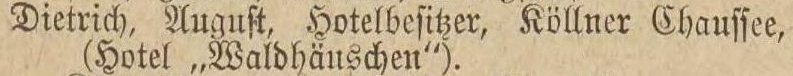 Dietrich, August, Hotelbesitzer, Köllner Chaussee,
(Hotel „Waldhäuschen“).